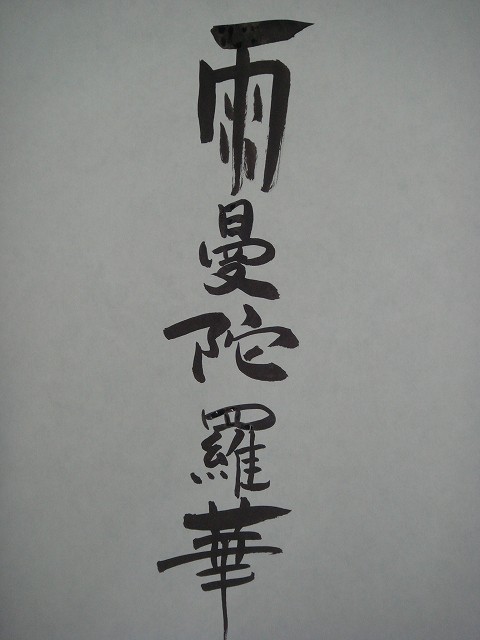 雨曼陀羅華